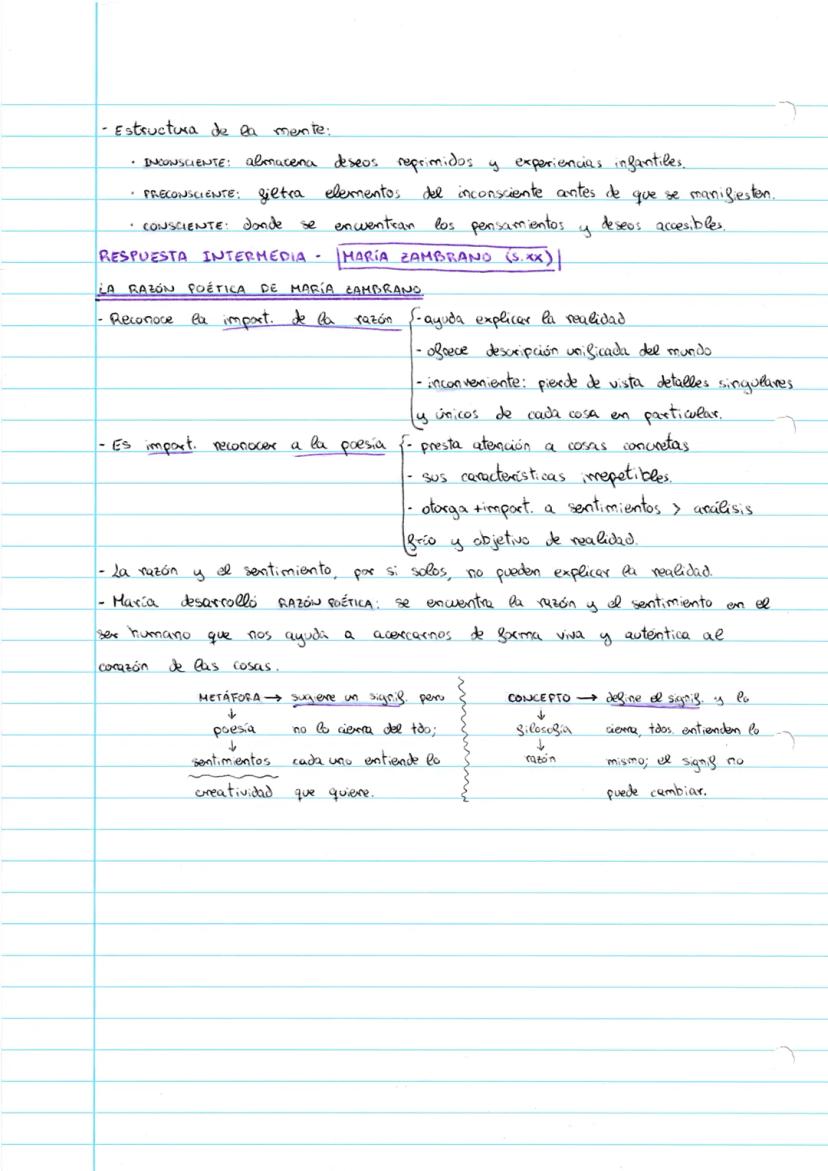 - Estructura de la mente:
· INCONSCIENTE: almacena deseos reprimidos y experiencias infantiles.
· PRECONSCIENTE: filtra elementos del inconsciente antes de que se manifiesten.
· CONSCIENTE: donde se encuentran los pensamientos y deseos accesibles.
RESPUESTA INTERMEDIA - MARÍA ZAMBRANO (S.XX)
LA RAZÓN POÉTICA DE MARÍA ZAMBRANO
- Reconoce la import. de la razón { - ayuda explicar la realidad
- ofrece descripción unificada del mundo
- inconveniente: pierde de vista detalles singulares
y únicos de cada cosa en particular.
- Es import. reconocer a la poesía { - presta atención a cosas concretas
- sus características irrepetibles.
- otorga +import. a sentimientos > análisis
frío y objetivo de realidad.
- La razón y el sentimiento, por si solos, no pueden explicar la realidad.
- María desarrolló RAZÓN POÉTICA: se encuentra la razón y el sentimiento en el
ser humano que nos ayuda a acercarnos de forma viva y auténtica al
corazón de las cosas.
METÁFORA → sugiere un signif. pero
↓
poesía no lo cierra del tdo;
↓
sentimientos cada uno entiende lo
creatividad que quiere.
CONCEPTO → define el signif. y lo
↓
filosofía cierra, tdos. entienden lo
↓
razón mismo; el signif no
puede cambiar.